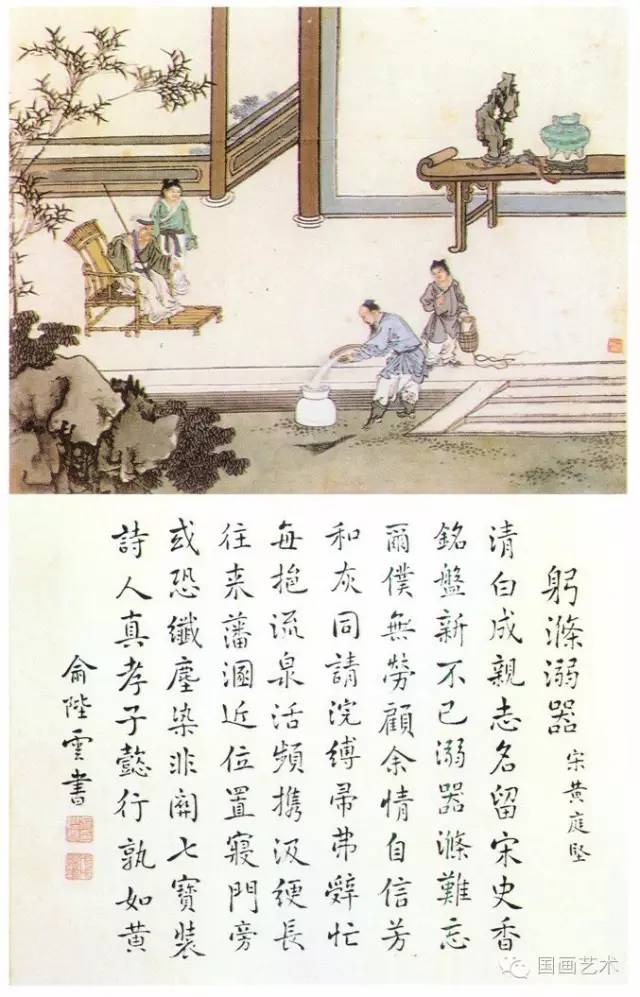 躬滌溺器 宋黃庭堅
清白成親志名留宋史香
銘盤新不已溺器滌難忘
爾僕無勞顧余情自信芳
和灰同請浣縛帚弗辭忙
每挹流泉活頻携汲綆長
往来藩溷近位置寢門旁
或恐纖塵染非關七寶裝
詩人真孝子懿行孰如黃
俞陛雲書
国画艺术